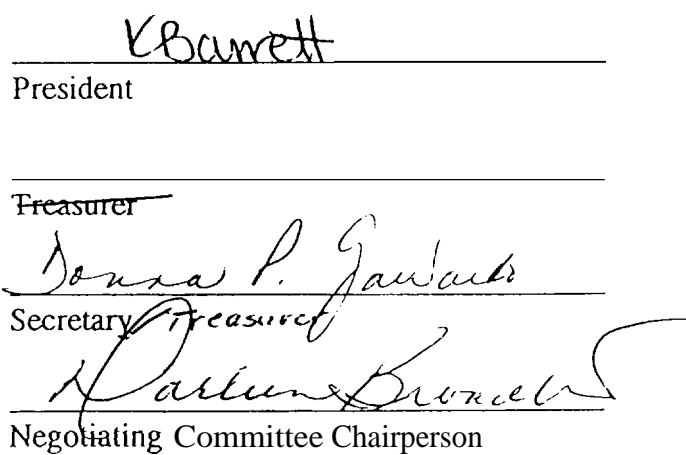 KBarrett
President
Treasurer
Donna P.
Secretary Treasurer
Negotiating Committee Chairperson